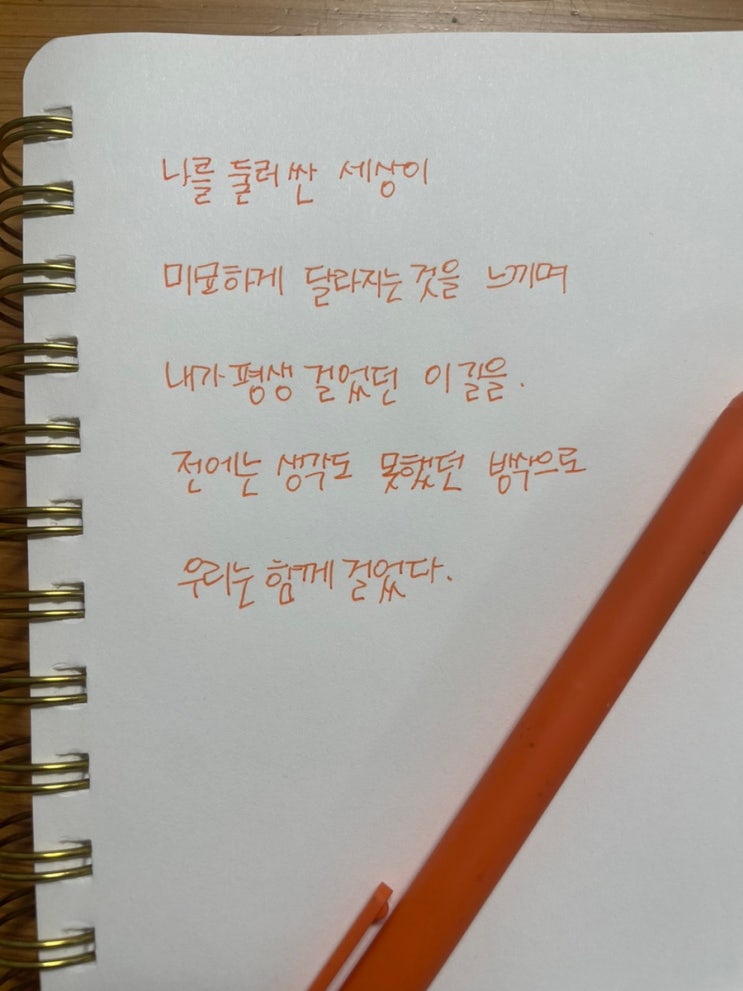 나를 둘러싼 세상이
미묘하게 달라지는 것을 느끼며
내가 평생 걸었던 이 길을.
전에는 생각도 못했던 방식으로
우리는 함께 걸었다.